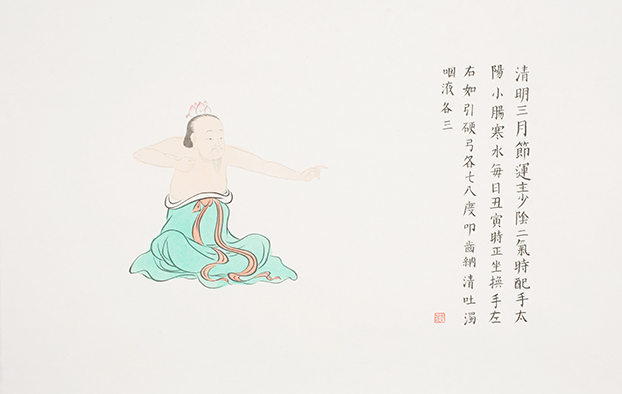 清明三月節運主少陰二氣時配手太
陽小腸寒水每日丑寅時正坐換手左
右如引硬弓各七八度叩齒納清吐濁
咽液各三